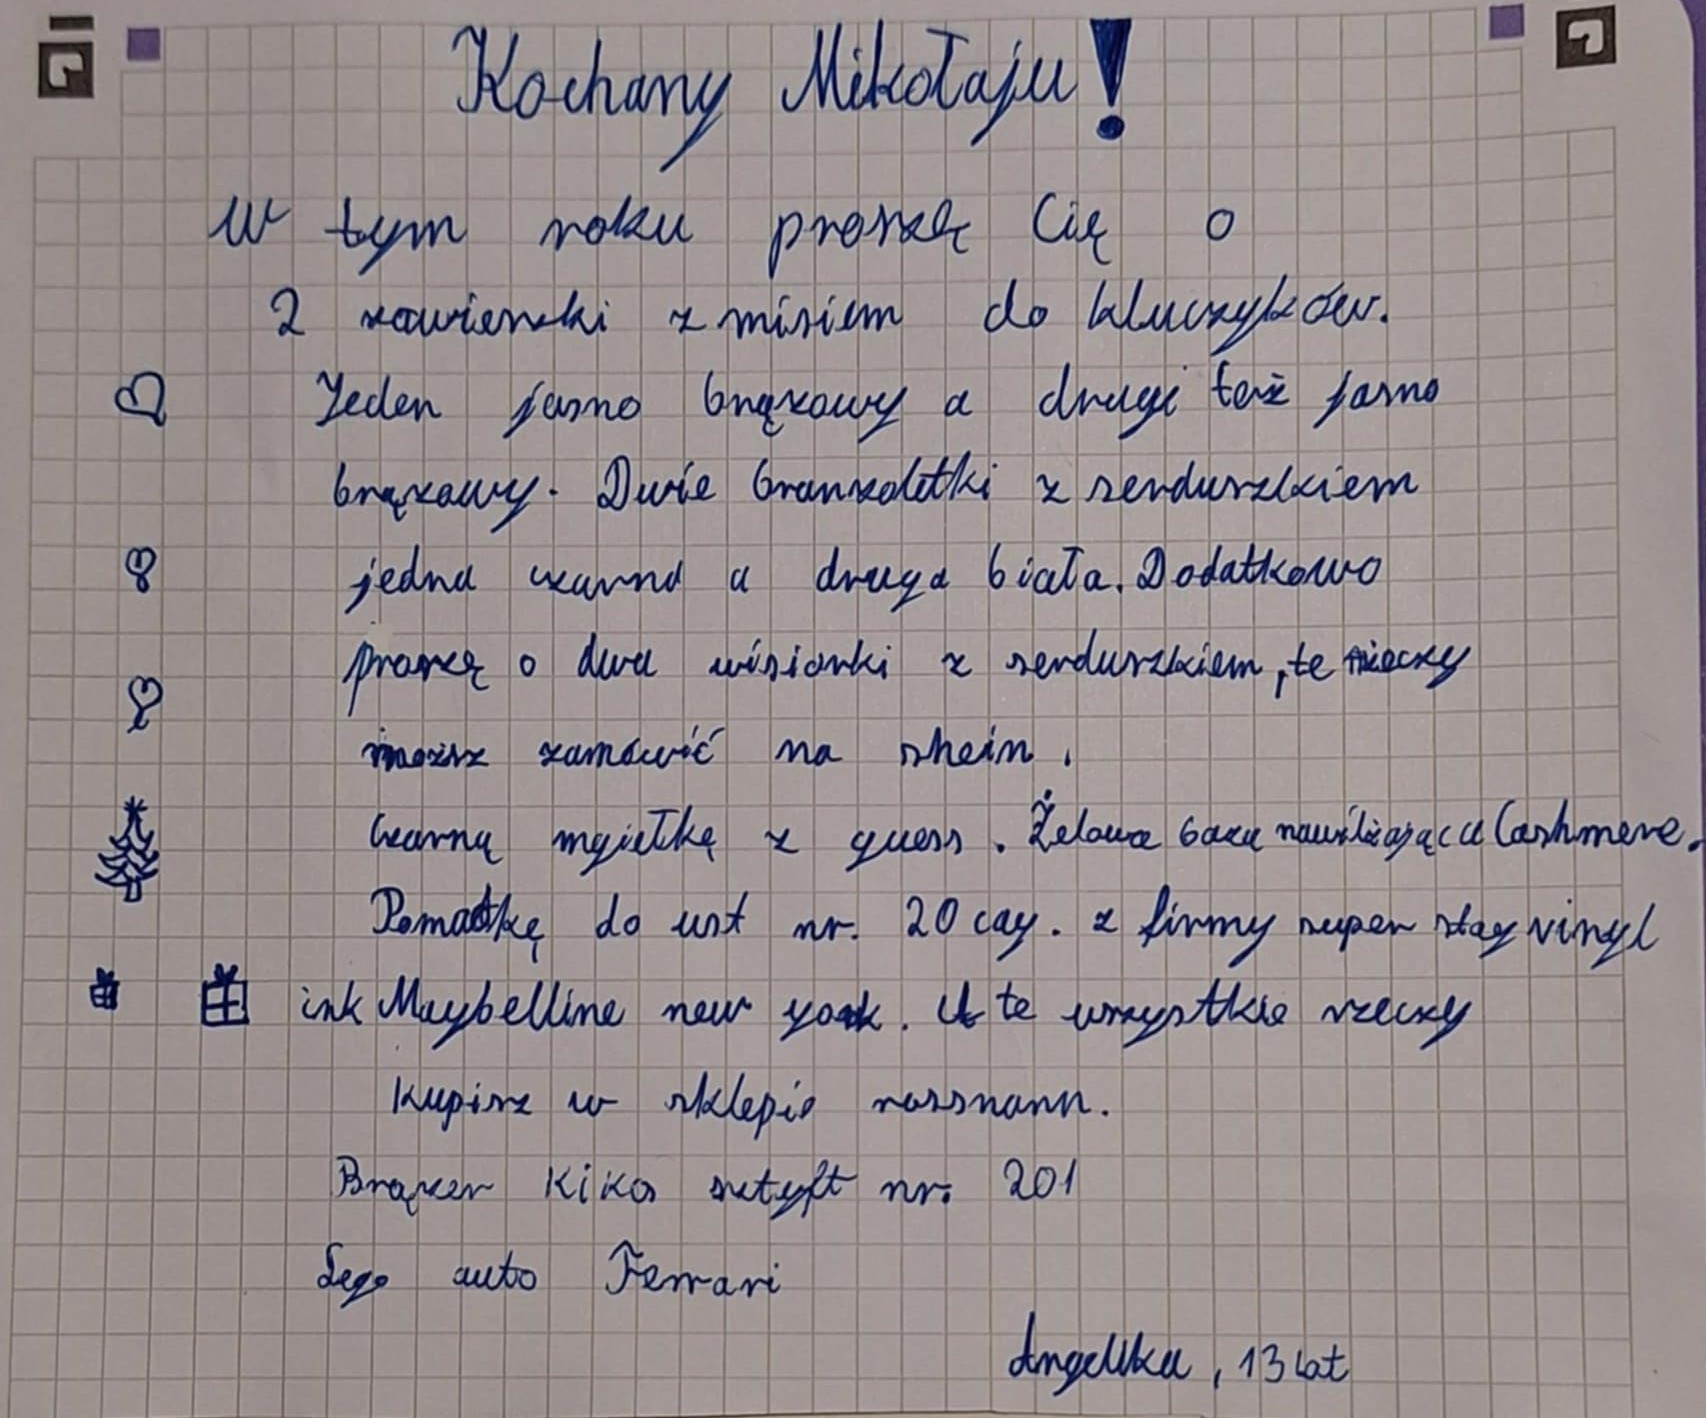 Kochany Mikołaju!
W tym roku proszę Cię o
2 zawieszki z misiem do kluczyków.
Jeden jasno brązowy a drugi też jasno
brązowy. Dwie branzoletki z serduszkiem
jedna czarna a druga biała. Dodatkowo
proszę o dwa wisiorki z serduszkiem, te rzeczy
możesz zamówić na shein.
Czarną mgiełkę z guess. Żelowa baza nawilżająca Cashmere.
Pomadkę do ust nr. 20 cay. z firmy super stay vinyl
ink Maybelline new york. A te wszystkie rzeczy
kupisz w sklepie rossmann.
Brązer Kiko sztyft nr. 201
Lego auto Ferrari
Angelika, 13 lat